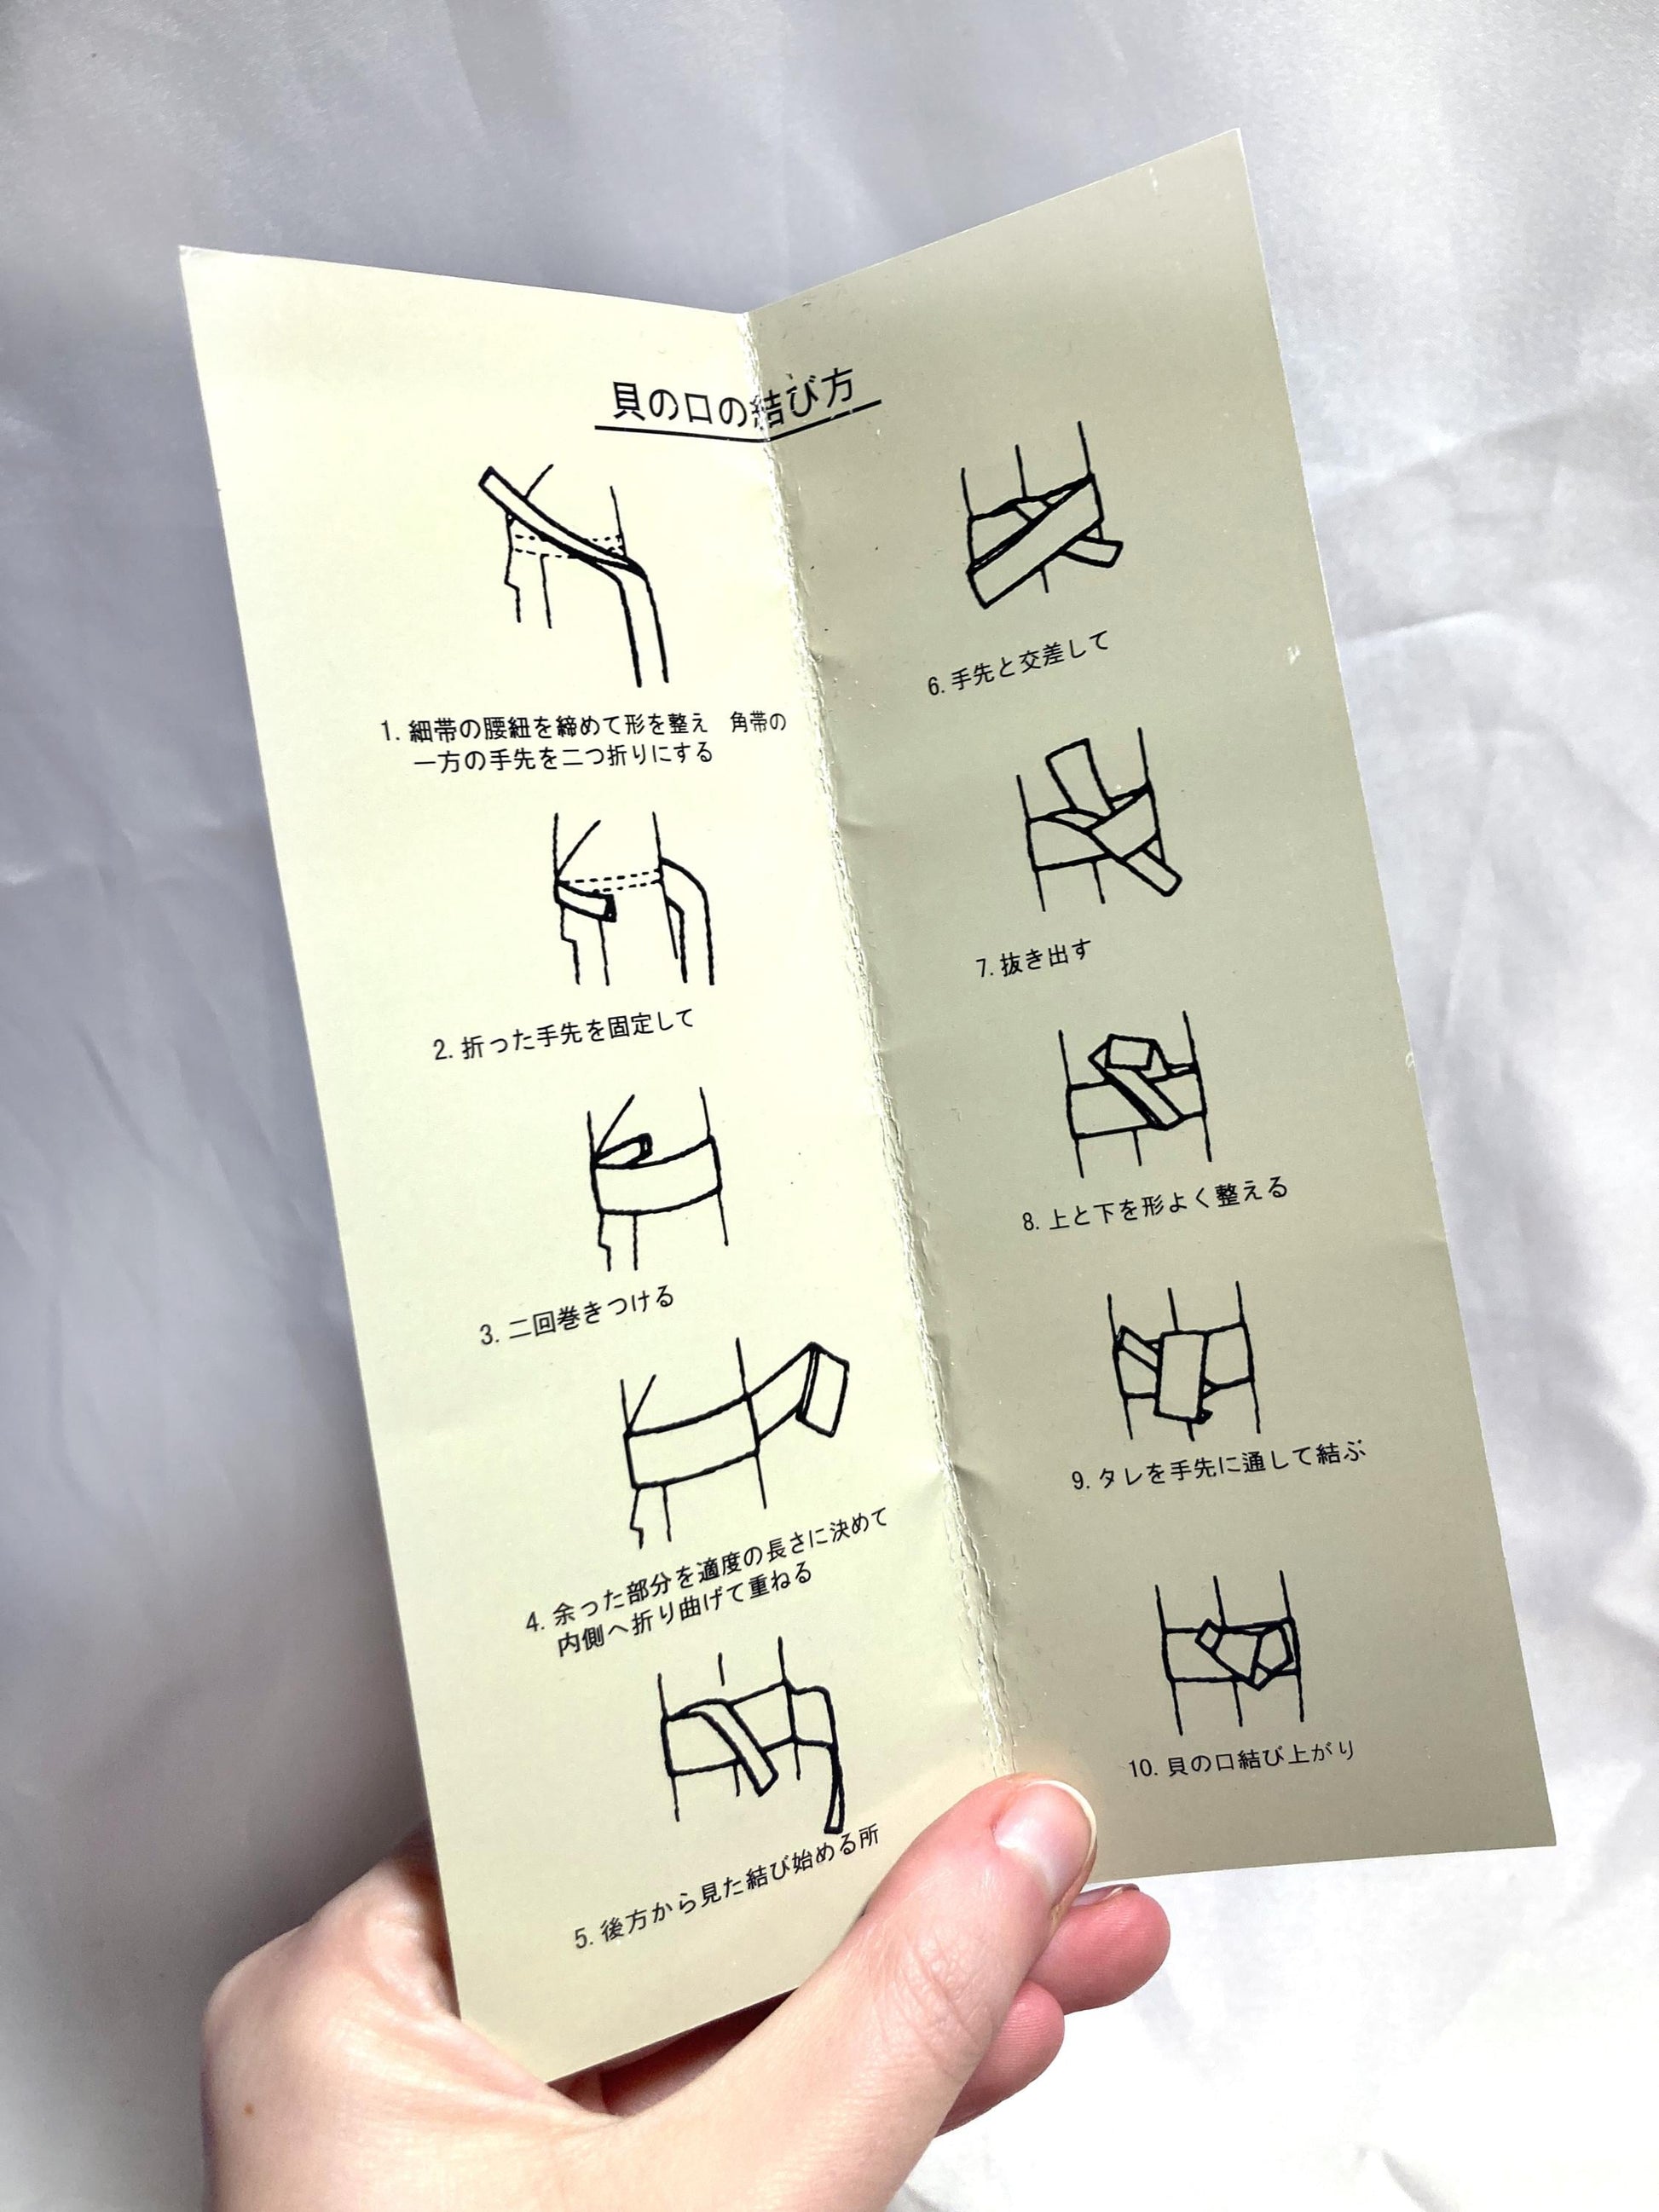 貝の口の結び方
1. 細帯の腰紐を締めて形を整え　角帯の
一方の手先を二つ折りにする
2. 折った手先を固定して
3. 二回巻きつける
4. 余った部分を適度の長さに決めて
内側へ折り曲げて重ねる
5. 後方から見た結び始める所
6. 手先と交差して
7. 抜き出す
8. 上と下を形よく整える
9. タレを手先に通して結ぶ
10. 貝の口結び上がり